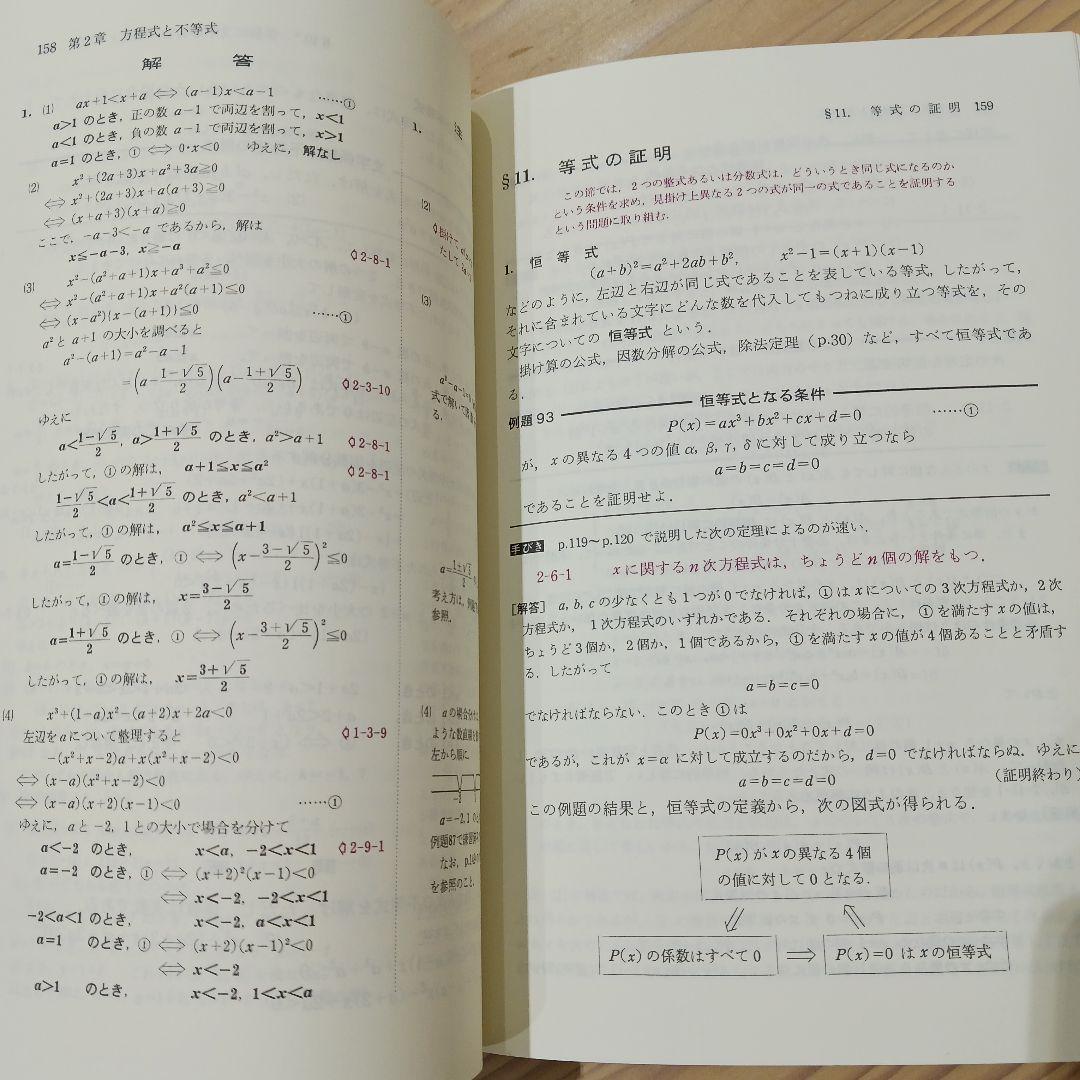 158 第2章 方程式と不等式
解 答
1. (1) ax+1<x+a ⇔ (a−1)x<a−1 ……①
a>1 のとき, 正の数 a−1 で両辺を割って, x<1
a<1 のとき, 負の数 a−1 で両辺を割って, x>1
a=1 のとき, ① ⇔ 0·x<0 ゆえに, 解なし
(2) x²+(2a+3)x+a²+3a≧0
⇔ x²+(2a+3)x+a(a+3)≧0
⇔ (x+a+3)(x+a)≧0
ここで, −a−3<−a であるから, 解は
x≦−a−3, x≧−a ◊2-8-1
(3) x²−(a²+a+1)x+a³+a²≦0
⇔ x²−(a²+a+1)x+a²(a+1)≦0
⇔ (x−a²){x−(a+1)}≦0 ……①
a² と a+1 の大小を調べると
a²−(a+1)=a²−a−1
=(a−(1−√5)/2)(a−(1+√5)/2) ◊2-3-10
ゆえに
a<(1−√5)/2, a>(1+√5)/2 のとき, a²>a+1 ◊2-8-1
したがって, ①の解は, a+1≦x≦a² ◊2-8-1
(1−√5)/2<a<(1+√5)/2 のとき, a²<a+1
したがって, ①の解は, a²≦x≦a+1
a=(1−√5)/2 のとき, ① ⇔ (x−(3−√5)/2)²≦0
したがって, ①の解は, x=(3−√5)/2
a=(1+√5)/2 のとき, ① ⇔ (x−(3+√5)/2)²≦0
したがって, ①の解は, x=(3+√5)/2
(4) x³+(1−a)x²−(a+2)x+2a<0
左辺をaについて整理すると ◊1-3-9
−(x²+x−2)a+x(x²+x−2)<0
⇔ (x−a)(x²+x−2)<0
⇔ (x−a)(x+2)(x−1)<0 ……①
ゆえに, aと−2, 1との大小で場合を分けて
a<−2 のとき, x<a, −2<x<1 ◊2-9-1
a=−2 のとき, ① ⇔ (x+2)²(x−1)<0
⇔ x<−2, −2<x<1
−2<a<1 のとき, x<−2, a<x<1
a=1 のとき, ① ⇔ (x+2)(x−1)²<0
⇔ x<−2
a>1 のとき, x<−2, 1<x<a
1.
(2)
(3)
式で解いて
る.
考え方は, 例題
参照.
(4) aの場合分け
ような数直線を
左から順に
a=−2, 1
例題87で
なお, p.14
を参照のこと.
§11. 等式の証明 159
§11. 等式の証明
この節では, 2つの整式あるいは分数式は, どういうとき同じ式になるのか
という条件を求め, 見掛け上異なる2つの式が同一の式であることを証明する
という問題に取り組む.
1. 恒等式
(a+b)²=a²+2ab+b², x²−1=(x+1)(x−1)
などのように, 左辺と右辺が同じ式であることを表している等式, したがって,
それに含まれている文字にどんな数を代入してもつねに成り立つ等式を, その
文字についての 恒等式 という.
掛け算の公式, 因数分解の公式, 除法定理 (p.30) など, すべて恒等式であ
る.
例題93 恒等式となる条件
P(x)=ax³+bx²+cx+d=0 ……①
が, xの異なる4つの値 α, β, γ, δ に対して成り立つなら
a=b=c=d=0
であることを証明せよ.
手びき p.119〜p.120 で説明した次の定理によるのが速い.
2-6-1 xに関するn次方程式は, ちょうどn個の解をもつ.
[解答] a, b, c の少なくとも1つが0でなければ, ①はxについての3次方程式か, 2次
方程式か, 1次方程式のいずれかである. それぞれの場合に, ①を満たすxの値は,
ちょうど3個か, 2個か, 1個であるから, ①を満たすxの値が4個あることと矛盾す
る. したがって
a=b=c=0
でなければならない. このとき①は
P(x)=0x³+0x²+0x+d=0
であるが, これが x=α に対して成立するのだから, d=0 でなければならぬ. ゆえに
a=b=c=d=0 (証明終わり)
この例題の結果と, 恒等式の定義から, 次の図式が得られる.
P(x)がxの異なる4個
の値に対して0となる.
⇙ ⇖
P(x)の係数はすべて0 ⇒ P(x)=0 はxの恒等式